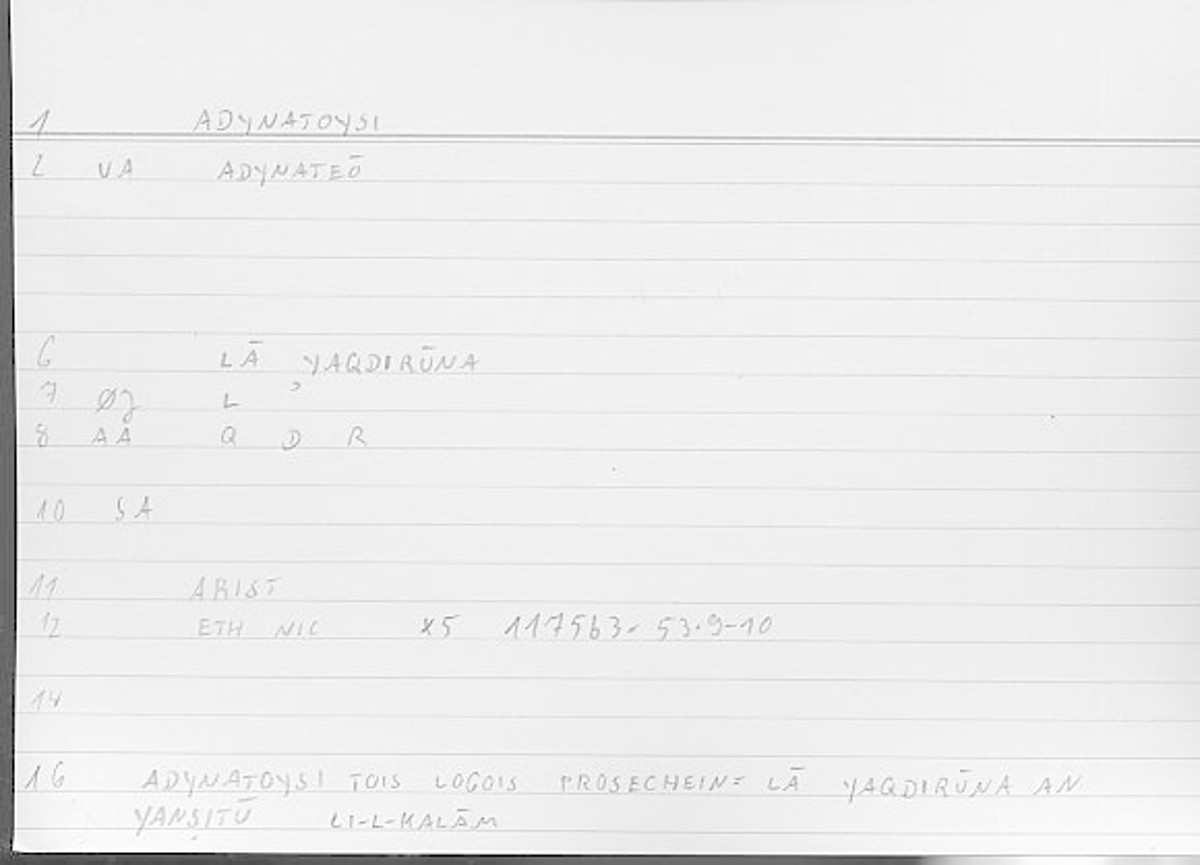 1 ADYNATOYSI
2 VA ADYNATEŌ
6 LĀ YAQDIRŪNA
7 ØJ L ʾ
8 AA Q D R
10 SA
11 ARIST
12 ETH NIC X5 1175b3= 53.9-10
14
16 ADYNATOYSI TOIS LOGOIS PROSECHEIN= LĀ YAQDIRŪNA AN
YANṢITŪ LI-L-KALĀM